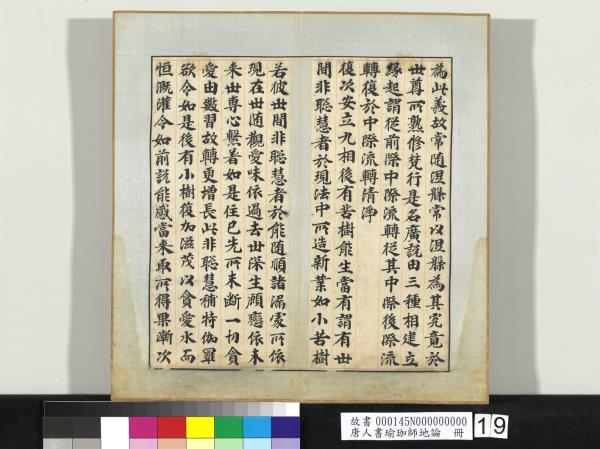 為此義故常随涅槃常以涅槃為其究竟於
世尊所熟修梵行是名廣說由三種相建立
緣起謂從前際中際流轉從其中際後際流
轉復於中際流轉清淨
復次安立九相後有苦樹能生當有謂有世
間非聦慧者於現法中所造新業如小苦樹
若彼世間非聦慧者於能随順諸漏處所依
現在世随觀愛味依過去世深生頋戀依未
来世專心繫著如是住已先所未断一切貪
愛由數習故轉更增長此非聦慧補特伽羅
欲令如是後有小樹復加滋茂以貪愛水而
恒溉灌令如前說能感當来取所得果漸次
故書 000145N000000000
唐人書瑜珈師地論 冊
19